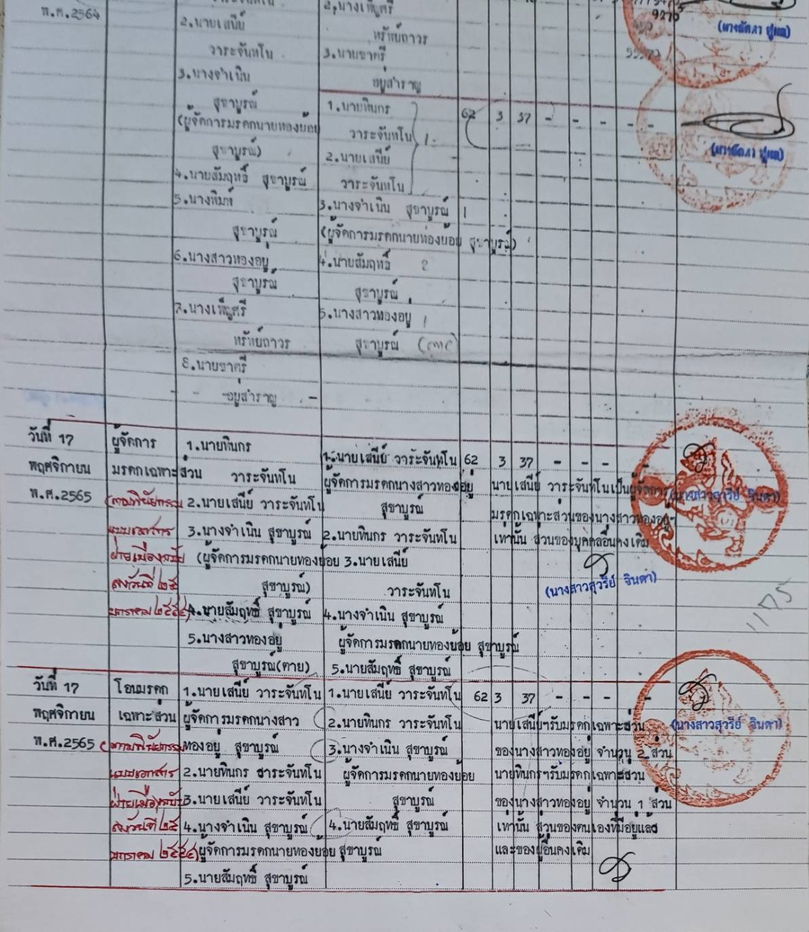 พ.ศ.2564
2.นายเสนีย์
วาระจันทโน
3.นางจำเนิน
สุขาบูรณ์
(ผู้จัดการมรดกนายทองย้อย
สุขาบูรณ์)
4.นายสัมฤทธิ์ สุขาบูรณ์
5.นางพิมพ์
สุขาบูรณ์
6.นางสาวทองอยู่
สุขาบูรณ์
7.นางเพ็ญศรี
ทรัพย์ถาวร
8.นายชาตรี
-อยู่สำราญ -
2.นางเพ็ญศรี
ทรัพย์ถาวร
3.นายชาตรี
อยู่สำราญ
1.นายทินกร
วาระจันทโน
2.นายเสนีย์
วาระจันทโน
3.นางจำเนิน สุขาบูรณ์
(ผู้จัดการมรดกนายทองย้อย สุขาบูรณ์)
4.นายสัมฤทธิ์
สุขาบูรณ์
5.นางสาวทองอยู่
สุขาบูรณ์
62 3 37 - - - - -
วันที่ 17
พฤศจิกายน
พ.ศ.2565
ผู้จัดการ
มรดกเฉพาะส่วน
1.นายทินกร
วาระจันทโน
2.นายเสนีย์ วาระจันทโน
3.นางจำเนิน สุขาบูรณ์
(ผู้จัดการมรดกนายทองย้อย
สุขาบูรณ์)
4.นายสัมฤทธิ์ สุขาบูรณ์
5.นางสาวทองอยู่
สุขาบูรณ์(ตาย)
1.นายเสนีย์ วาระจันทโน
ผู้จัดการมรดกนางสาวทองอยู่
สุขาบูรณ์
2.นายทินกร วาระจันทโน
3.นายเสนีย์
วาระจันทโน
4.นางจำเนิน สุขาบูรณ์
ผู้จัดการมรดกนายทองย้อย สุขาบูรณ์
5.นายสัมฤทธิ์ สุขาบูรณ์
62 3 37 - - -
นายเสนีย์ วาระจันทโนเป็นผู้จัดการ
มรดกเฉพาะส่วนของนางสาวทองอยู่
เท่านั้น ส่วนของบุคคลอื่นคงเดิม
(นางสาวสุวรีย์ จินดา)
(นางสาวสุวรีย์ จินดา)
1175
วันที่ 17
พฤศจิกายน
พ.ศ.2565
โอนมรดก
เฉพาะส่วน
1.นายเสนีย์ วาระจันทโน
ผู้จัดการมรดกนางสาว
ทองอยู่ สุขาบูรณ์
2.นายทินกร วาระจันทโน
3.นายเสนีย์ วาระจันทโน
4.นางจำเนิน สุขาบูรณ์
ผู้จัดการมรดกนายทองย้อย สุขาบูรณ์
5.นายสัมฤทธิ์ สุขาบูรณ์
1.นายเสนีย์ วาระจันทโน
2.นายทินกร วาระจันทโน
3.นางจำเนิน สุขาบูรณ์
ผู้จัดการมรดกนายทองย้อย
สุขาบูรณ์
4.นายสัมฤทธิ์ สุขาบูรณ์
62 3 37 - - - - -
นายเสนีย์ฯรับมรดกเฉพาะส่วน
ของนางสาวทองอยู่ จำนวน 2 ส่วน
นายทินกรฯรับมรดกเฉพาะส่วน
ของนางสาวทองอยู่ จำนวน 1 ส่วน
เท่านั้น ส่วนของตนเองที่มีอยู่แล้ว
และของผู้อื่นคงเดิม
(นางสาวสุวรีย์ จินดา)